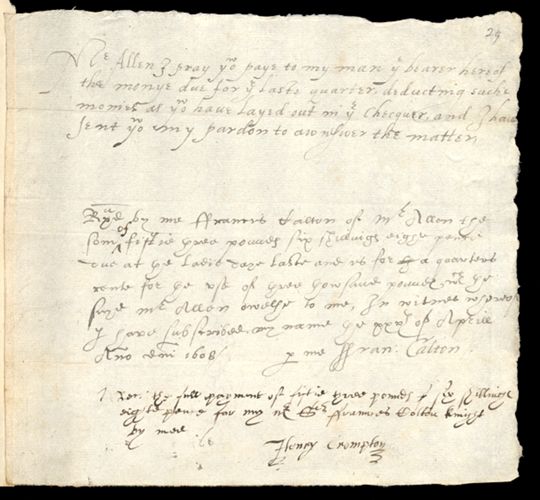 29
Mr Allen I pray yo paye to my man ye bearer hereof
the monye due for ye laste quarter deducting such
monies as yo have layed out in ye Checquer and I have
sent yo my pardon to awnswer the matter
Rd by me ffrancis Calton of Mr Allen the
som of fiftie three poundes six shillings eighte pence
due at the Ladie daye laste and is for a quarters
rente for the use of three thowsand poundes the
sayd Mr Allen oweth to me, In witnes whereof
I have subscribed my name the xxxth of Aprill
Ano dni 1608 p me ffran: Calton
Rec: the full payment of fiftie three poundes & six shillings
eighte pence for my Mr Sr ffrances Calton knight
by mee
Henry Crompton